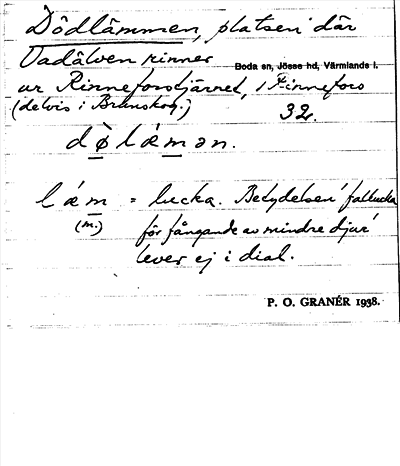 Dödlämmen, platsen där
Vadälven rinner
Boda sn, Jösse hd, Värmlands l.
ur Rinneforstjärnet, 1 Rinnefors
(delvis i Brunskog.) 32.
d ø̀ l ǽ m ə n.
l æ m = lucka. Betydelsen 'fallucka
(m.) för fångande av mindre djur'
lever ej i dial.
P. O. GRANÉR 1938.